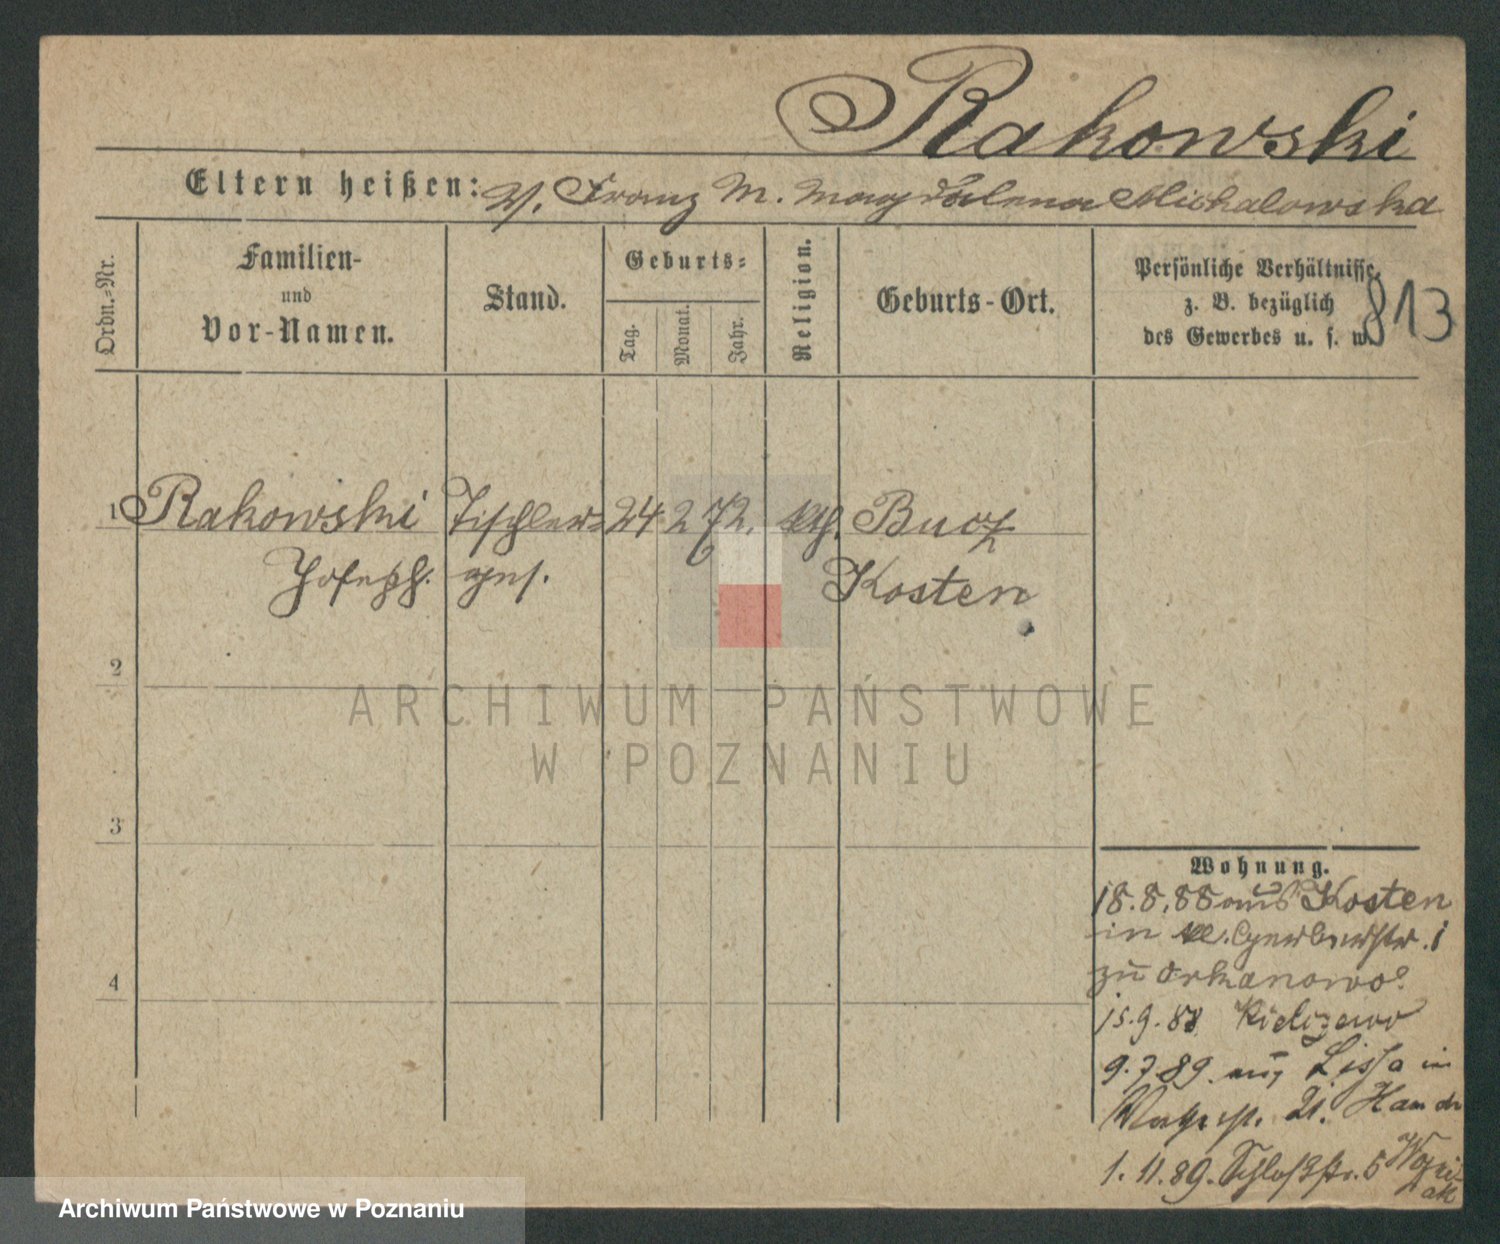 Rakowski
Eltern heißen: V. Franz M. Magdalena Michalowska
Ordn.-Nr.
Familien-
und
Vor-Namen.
Stand.
Geburts-
Tag.
Monat.
Jahr.
Religion.
Geburts-Ort.
Persönliche Verhältnisse,
z. B. bezüglich
des Gewerbes u. s. w.
813
1 Rakowski Tischler- 24 2 72. kth. Bucz
Joseph. ges. Kosten
2
3
4
ARCHIWUM PAŃSTWOWE
W POZNANIU
Wohnung.
18.8.88 aus Kosten
in kl. Gerberstr. 1
zu
15.9.88
9.7.89. aus Lissa in
21.
1.11.89. Schloßstr. 5 Wozni-
ak
Archiwum Państwowe w Poznaniu